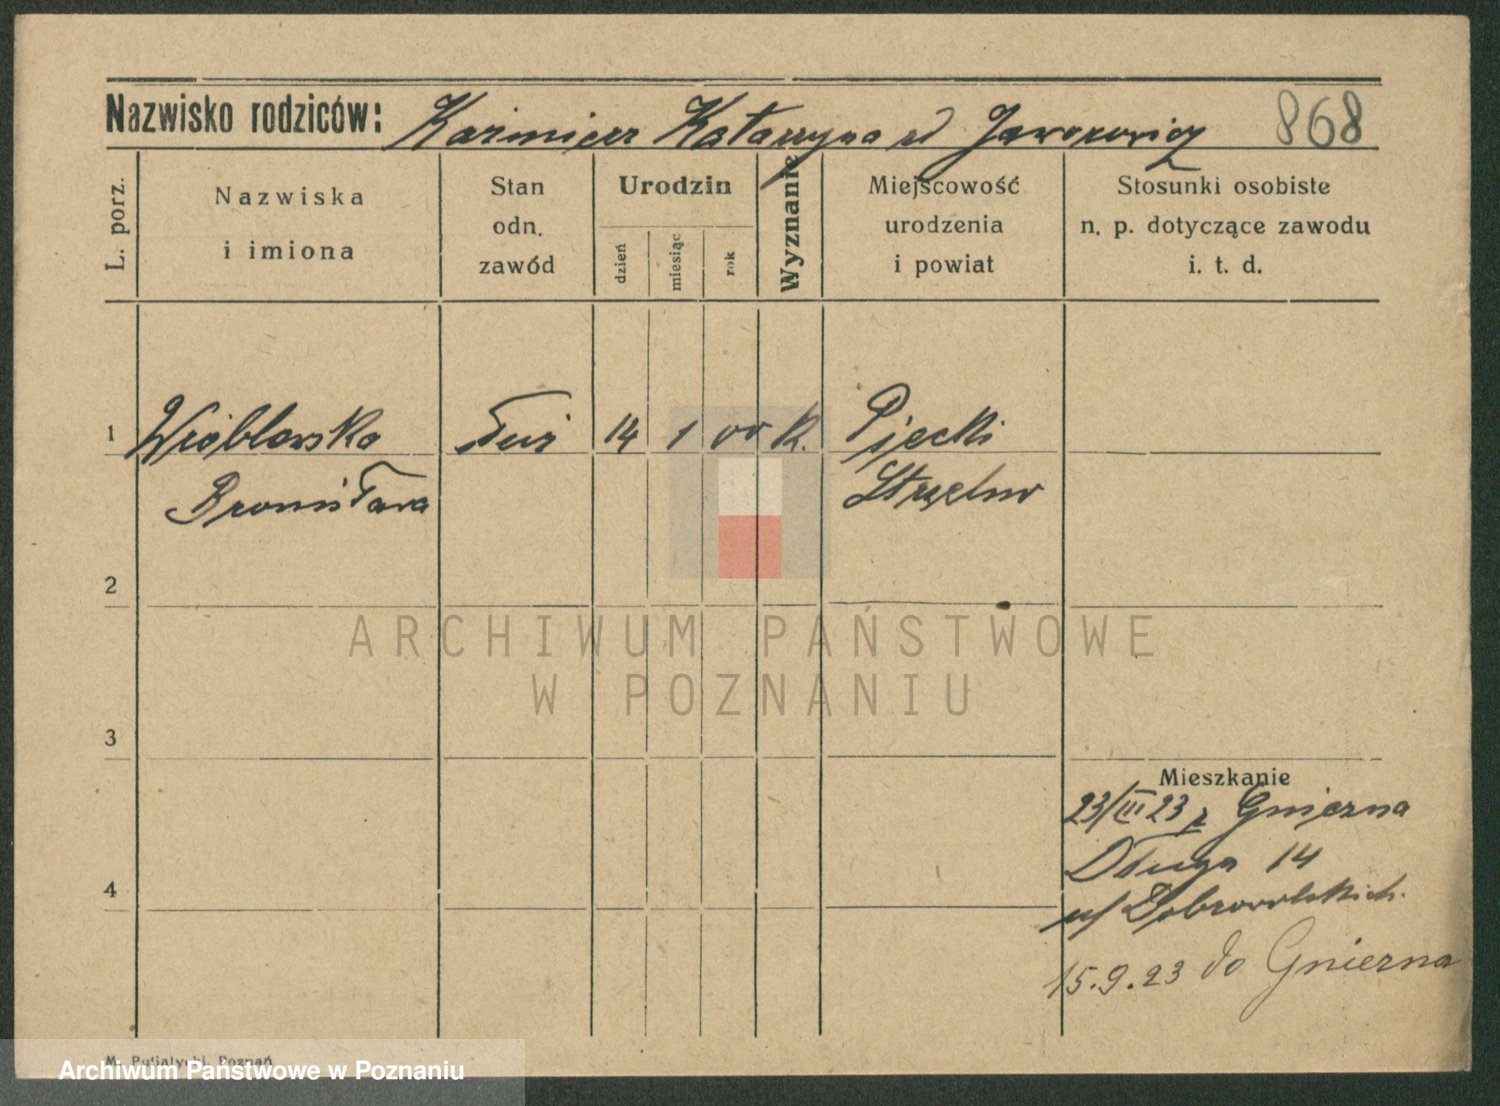 Nazwisko rodziców: Kazimierz Katarzyna Jaworowicz 868
L. porz.
Nazwiska
i imiona
Stan
odn.
zawód
Urodzin
dzień
miesiąc
rok
Wyznanie
Miejscowość
urodzenia
i powiat
Stosunki osobiste
n. p. dotyczące zawodu
i. t. d.
1 Wróblewska 14 1 00 K. Piecki
Bronisława Strzelno
2
3
Mieszkanie
23/III 23 z Gniezna
Długa 14
4
u/ Dobrowolskich.
15.9.23 do Gniezna
M. Putiatycki, Poznań
Archiwum Państwowe w Poznaniu
ARCHIWUM PAŃSTWOWE
W POZNANIU